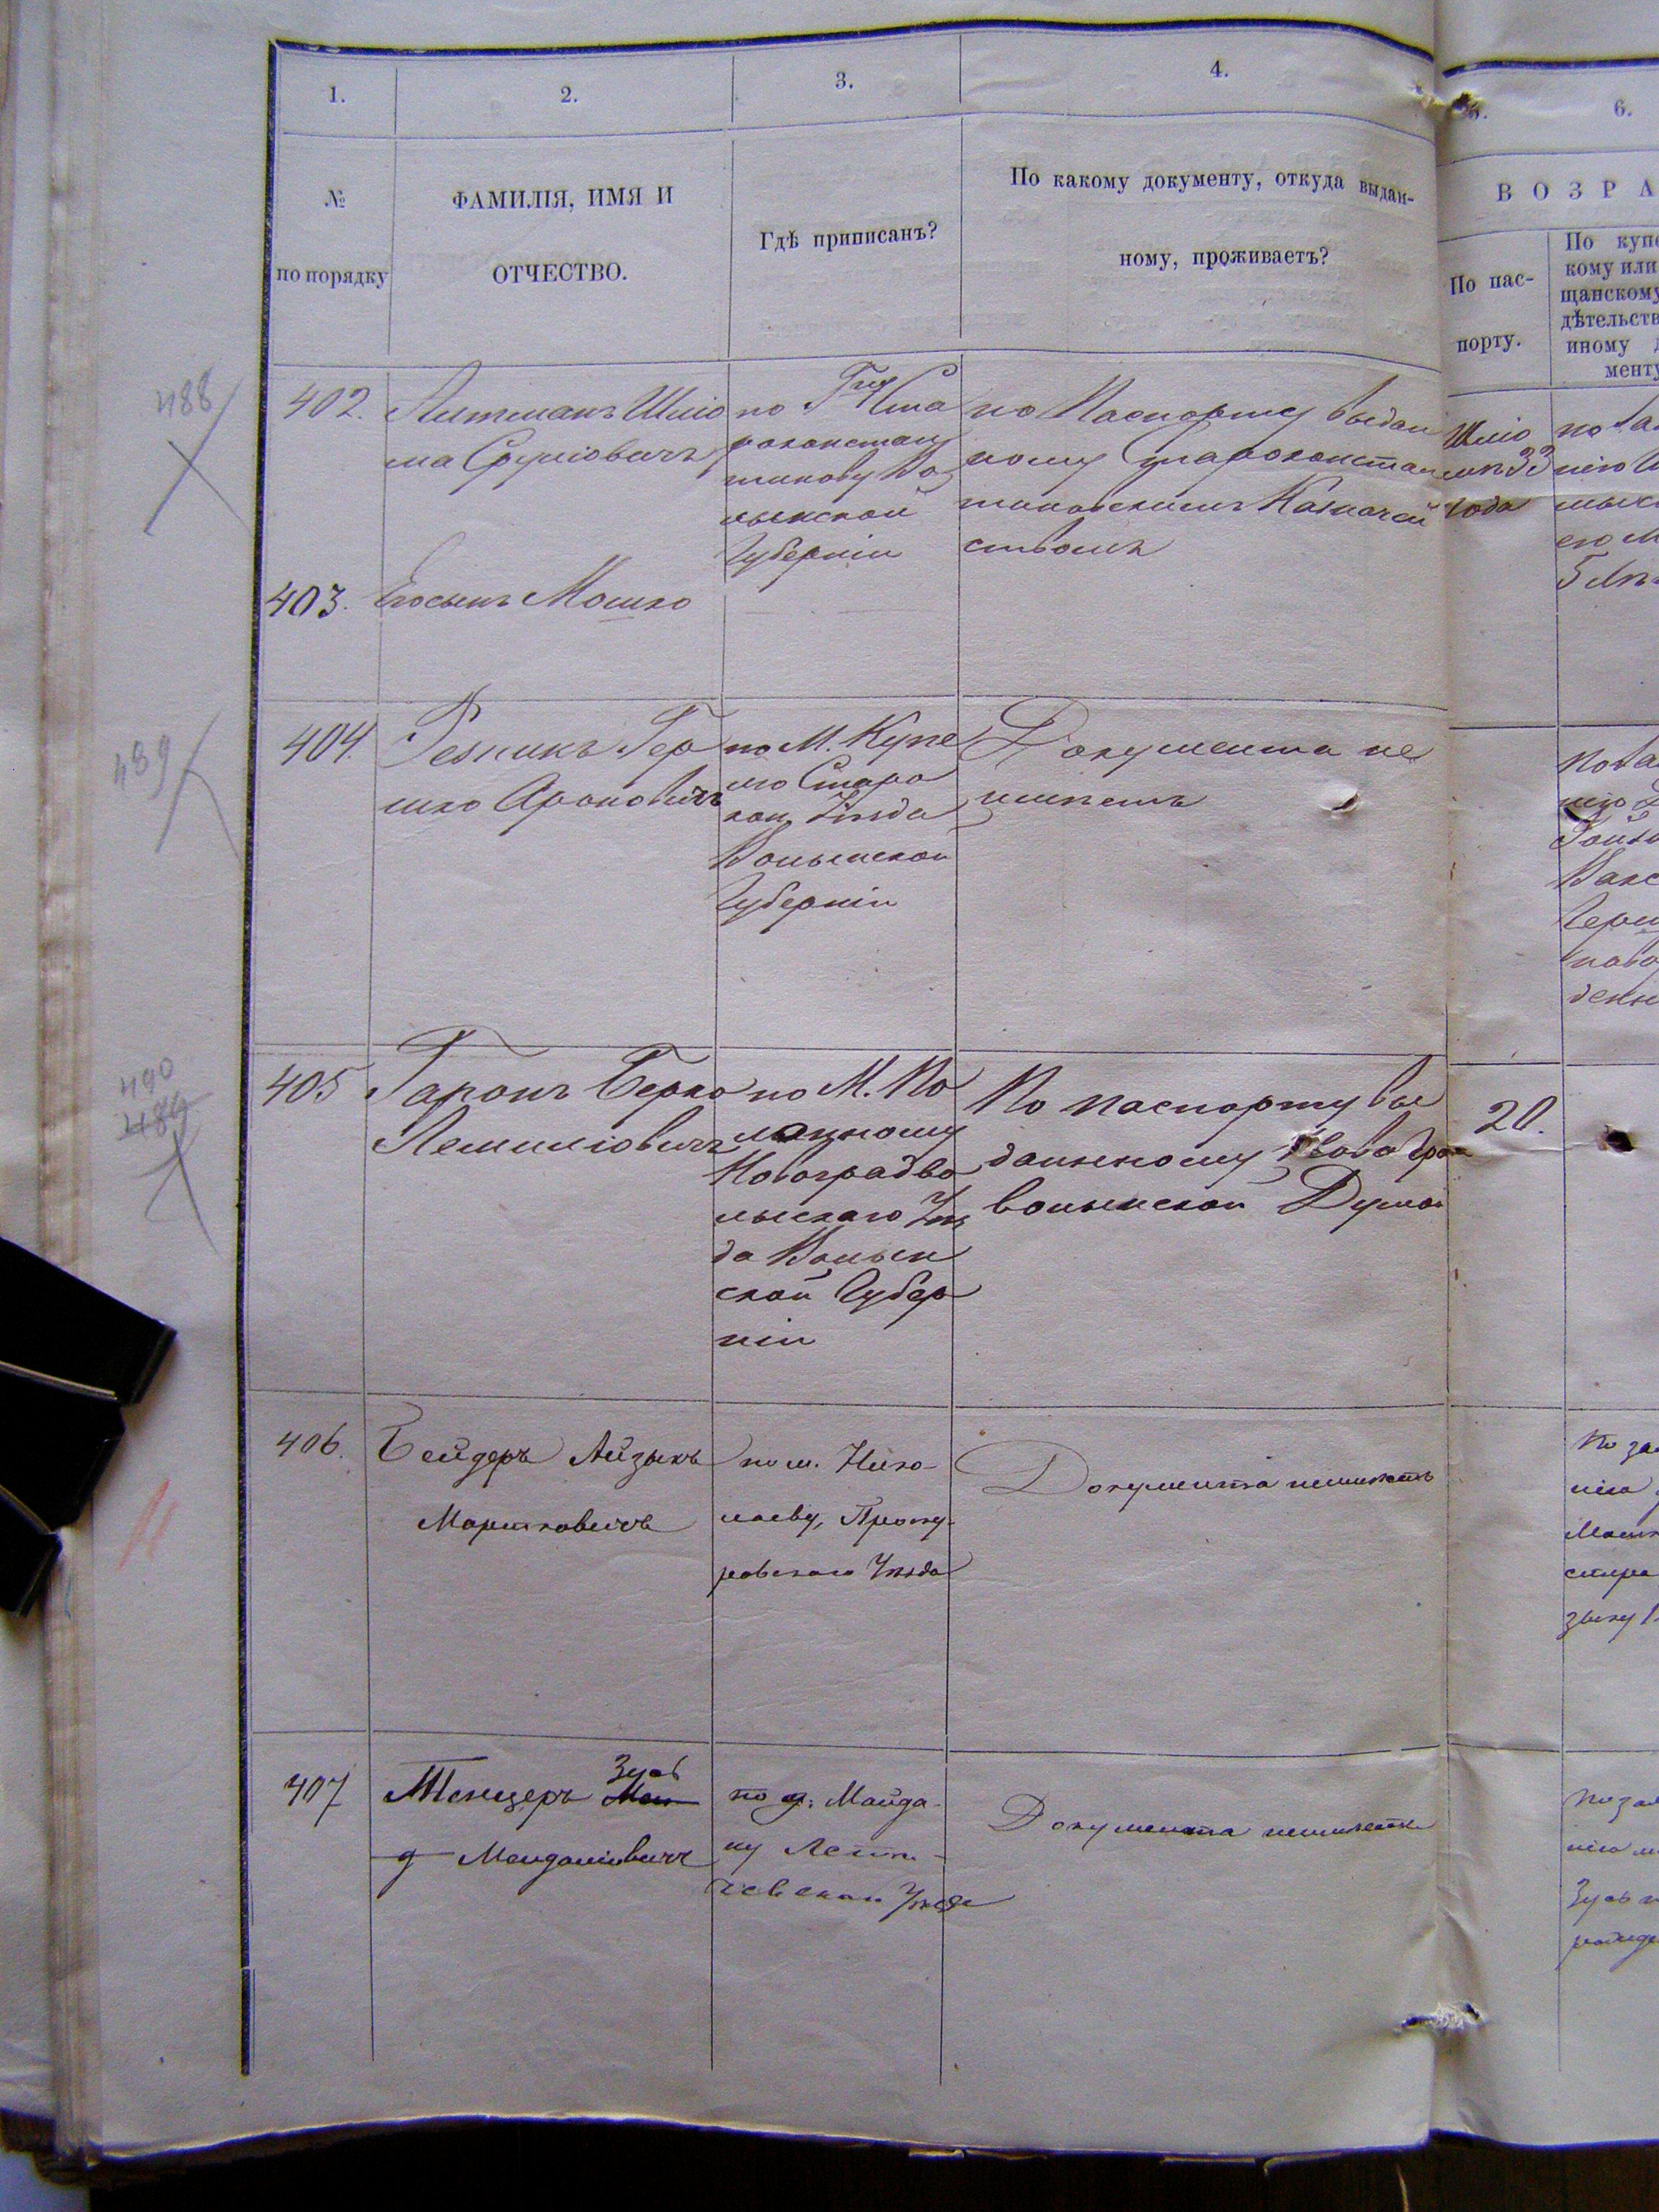 1.
2.
3.
4.
6.
№
по порядку
ФАМИЛІЯ, ИМЯ И
ОТЧЕСТВО.
Гдѣ приписанъ?
По какому документу, откуда выдан-
ному, проживаетъ?
ВОЗРА
По пас-
порту.
По купе
кому или
щанскому
дѣтельств
иному
менту
488
402.
Литманъ Шліо
ма Сруліовичъ
по Гду Ста
роконстан
тинову Во
лынской
Губерніи
по Паспорту выдан
ному Староконстан
тиновскимъ Казначей
ствомъ
Шліо
мѣ 33
года
5 лѣт
403.
Его сынъ Мошко
489
404.
Резникъ Гер
шко Ароновичъ
по М. Купе
лю Старо
кон. Уѣзда
Волынской
Губерніи
Документа не
имѣетъ
490
489
405
Гаронъ Берко
Лемиліовичъ
по М. По
лонному
Новоградво
лынскаго Уѣз
да Волын
ской Губер
ніи
По паспорту вы
данному Новогра
волынской Думой
20.
406.
Бейдеръ Айзыкъ
Моршковичъ
по м. Нико
лаеву, Проску-
ровскаго Уѣзда
Документа неимѣетъ
407
Тенцеръ Зусь
Мендаліовичъ
по д. Майда-
ну Лети-
чевскаго Уѣзда
Документа неимѣетъ